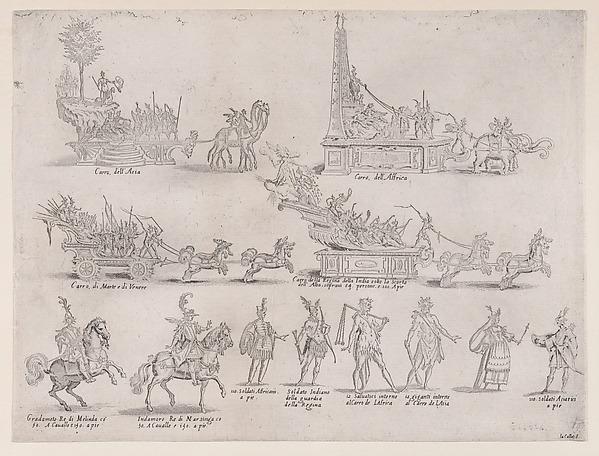 Carro, dell'Asia
Carro, dell'Affrica
Carro, di Marte e di Venere
Carro della Regina della India sotto la scorta
dell Alba, sopravi 64 persone e 100 a pie
Gradameto Re di Melinda co
50. A Cavallo e 150. a pie
Indamoro Re di Narsinga co
50. A Cavallo e 150. a pie
110. Soldati Africani
a pie
Soldato Indiano
della guardia
della Regina
12. Salvatici intorno
al Carro de L'Africa
12. Giganti intorno
al Carro de L'Asia
110. Soldati Asiatici
a pie
Ia. Callot f.